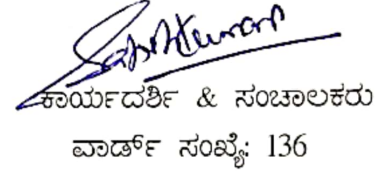 ಕಾರ್ಯದರ್ಶಿ & ಸಂಚಾಲಕರು
ವಾರ್ಡ್ ಸಂಖ್ಯೆ: 136